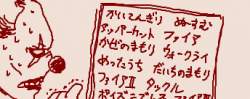 かいてんぎり ぬーすむ
アッパーカット ファイア
かぜのまもり ウォークライ
めったうち だいちのまもり
ファイアⅡ タックル